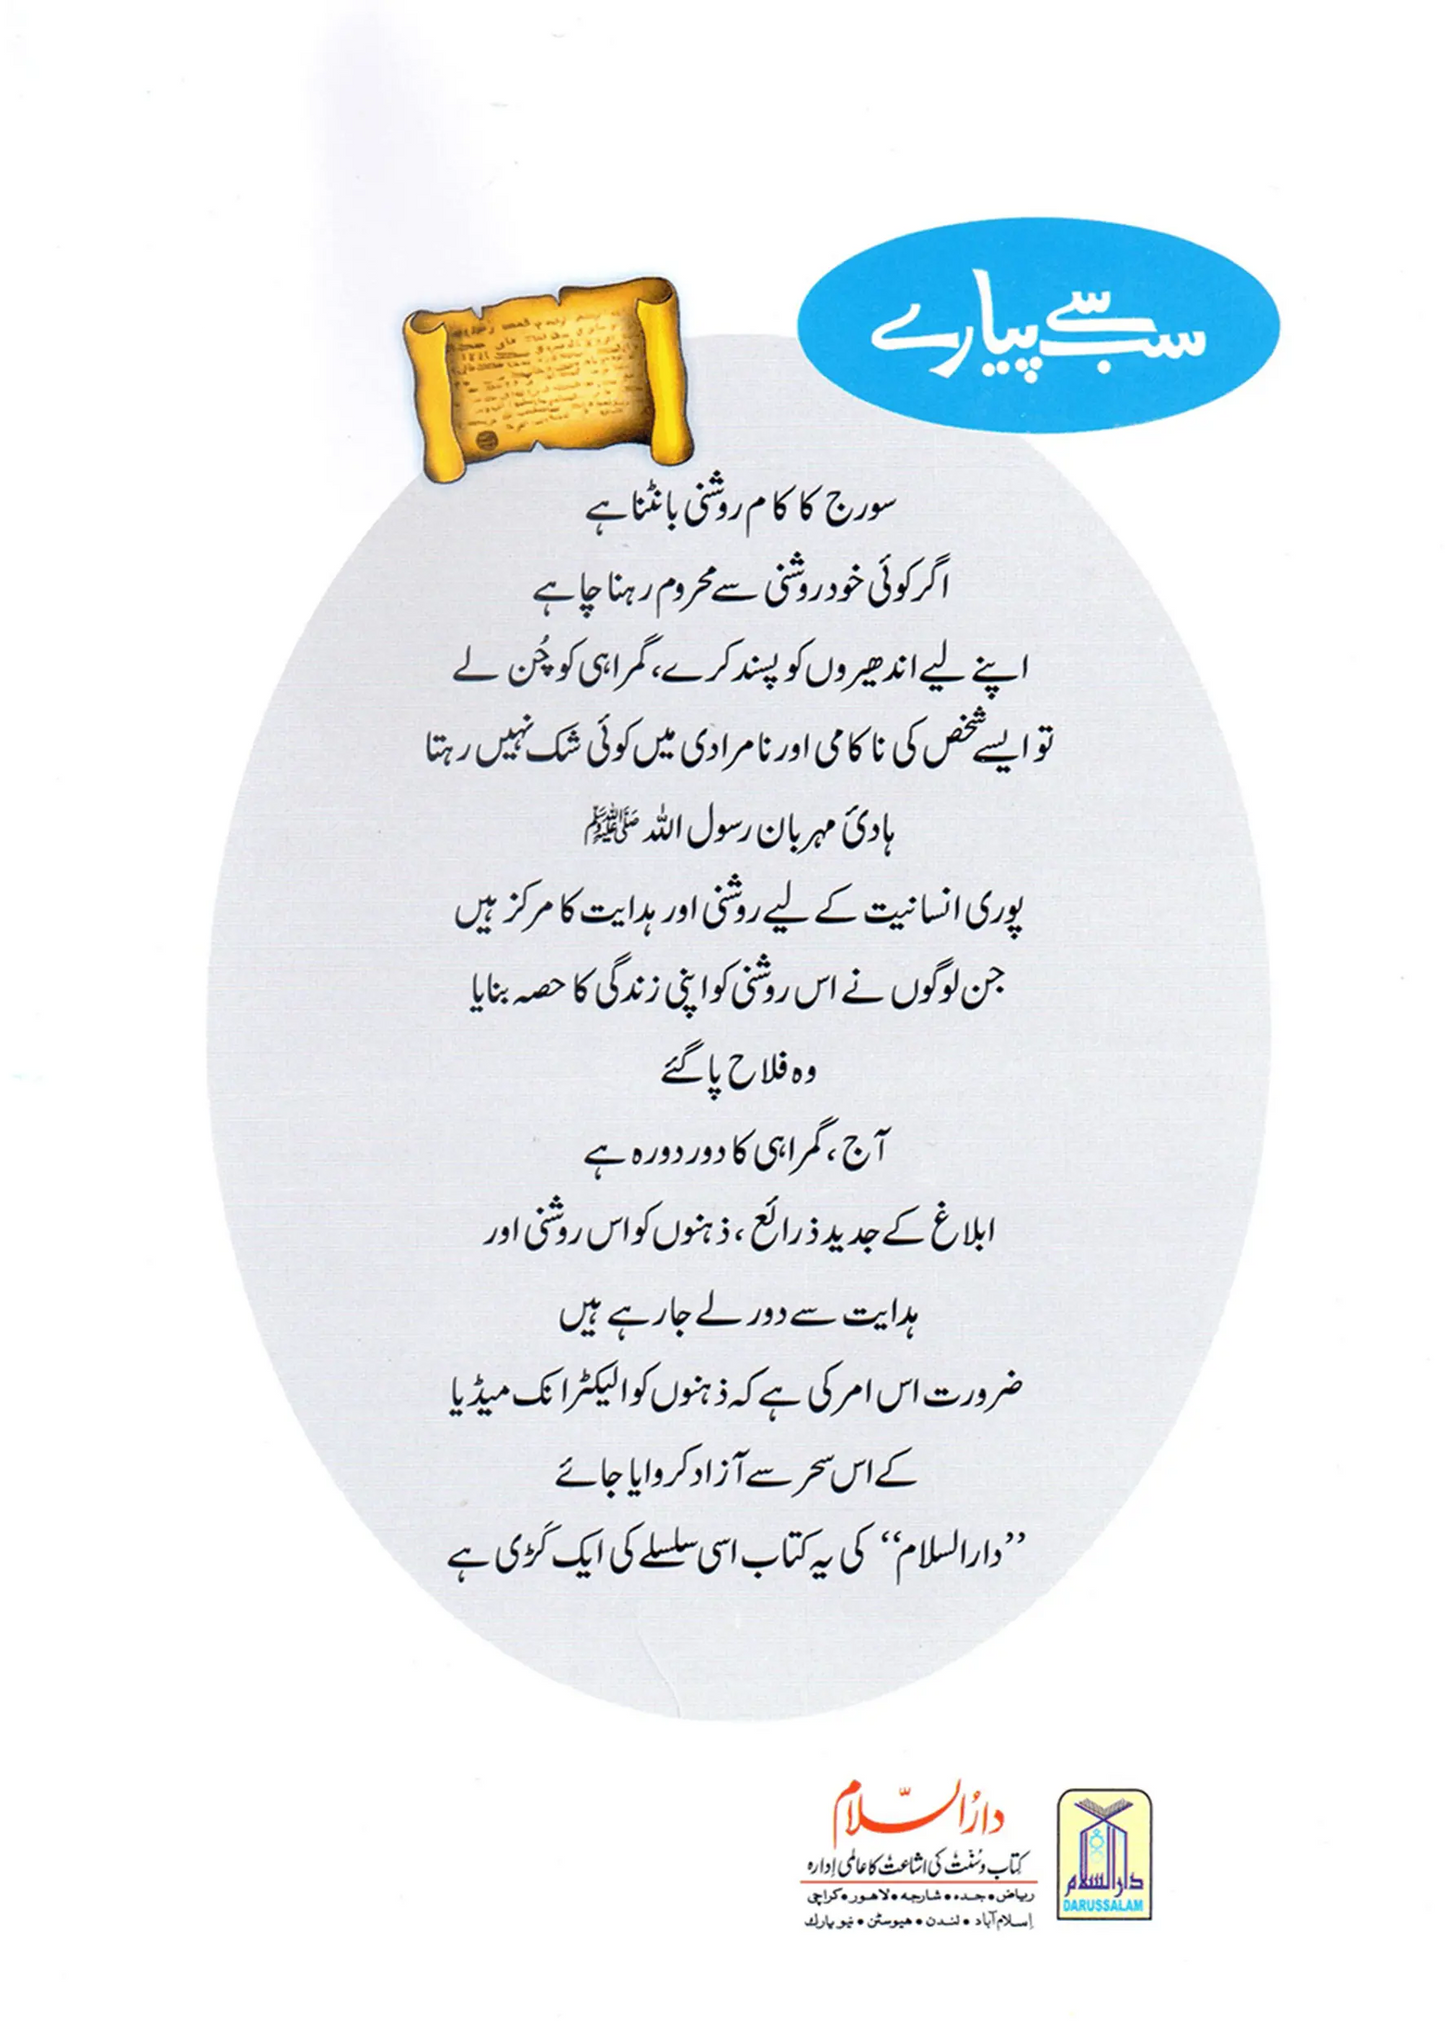 سب سے پیارے
سورج کا کام روشنی بانٹنا ہے
اگر کوئی خود روشنی سے محروم رہنا چاہے
اپنے لیے اندھیروں کو پسند کرے، گمراہی کو چُن لے
تو ایسے شخص کی ناکامی اور نامرادی میں کوئی شک نہیں رہتا
ہادیٔ مہربان رسول اللہ ﷺ
پوری انسانیت کے لیے روشنی اور ہدایت کا مرکز ہیں
جن لوگوں نے اس روشنی کو اپنی زندگی کا حصہ بنایا
وہ فلاح پا گئے
آج، گمراہی کا دور دورہ ہے
ابلاغ کے جدید ذرائع، ذہنوں کو اس روشنی اور
ہدایت سے دور لے جا رہے ہیں
ضرورت اس امر کی ہے کہ ذہنوں کو الیکٹرانک میڈیا
کے اس سحر سے آزاد کروایا جائے
”دارالسلام“ کی یہ کتاب اسی سلسلے کی ایک کَڑی ہے
دارُالسّلام
کتاب و سُنّت کی اشاعت کا عالمی ادارہ
ریاض • جدہ • شارجہ • لاہور • کراچی
اِسلام آباد • لندن • ھیوسٹن • نیو یارک
دارالسلام
DARUSSALAM